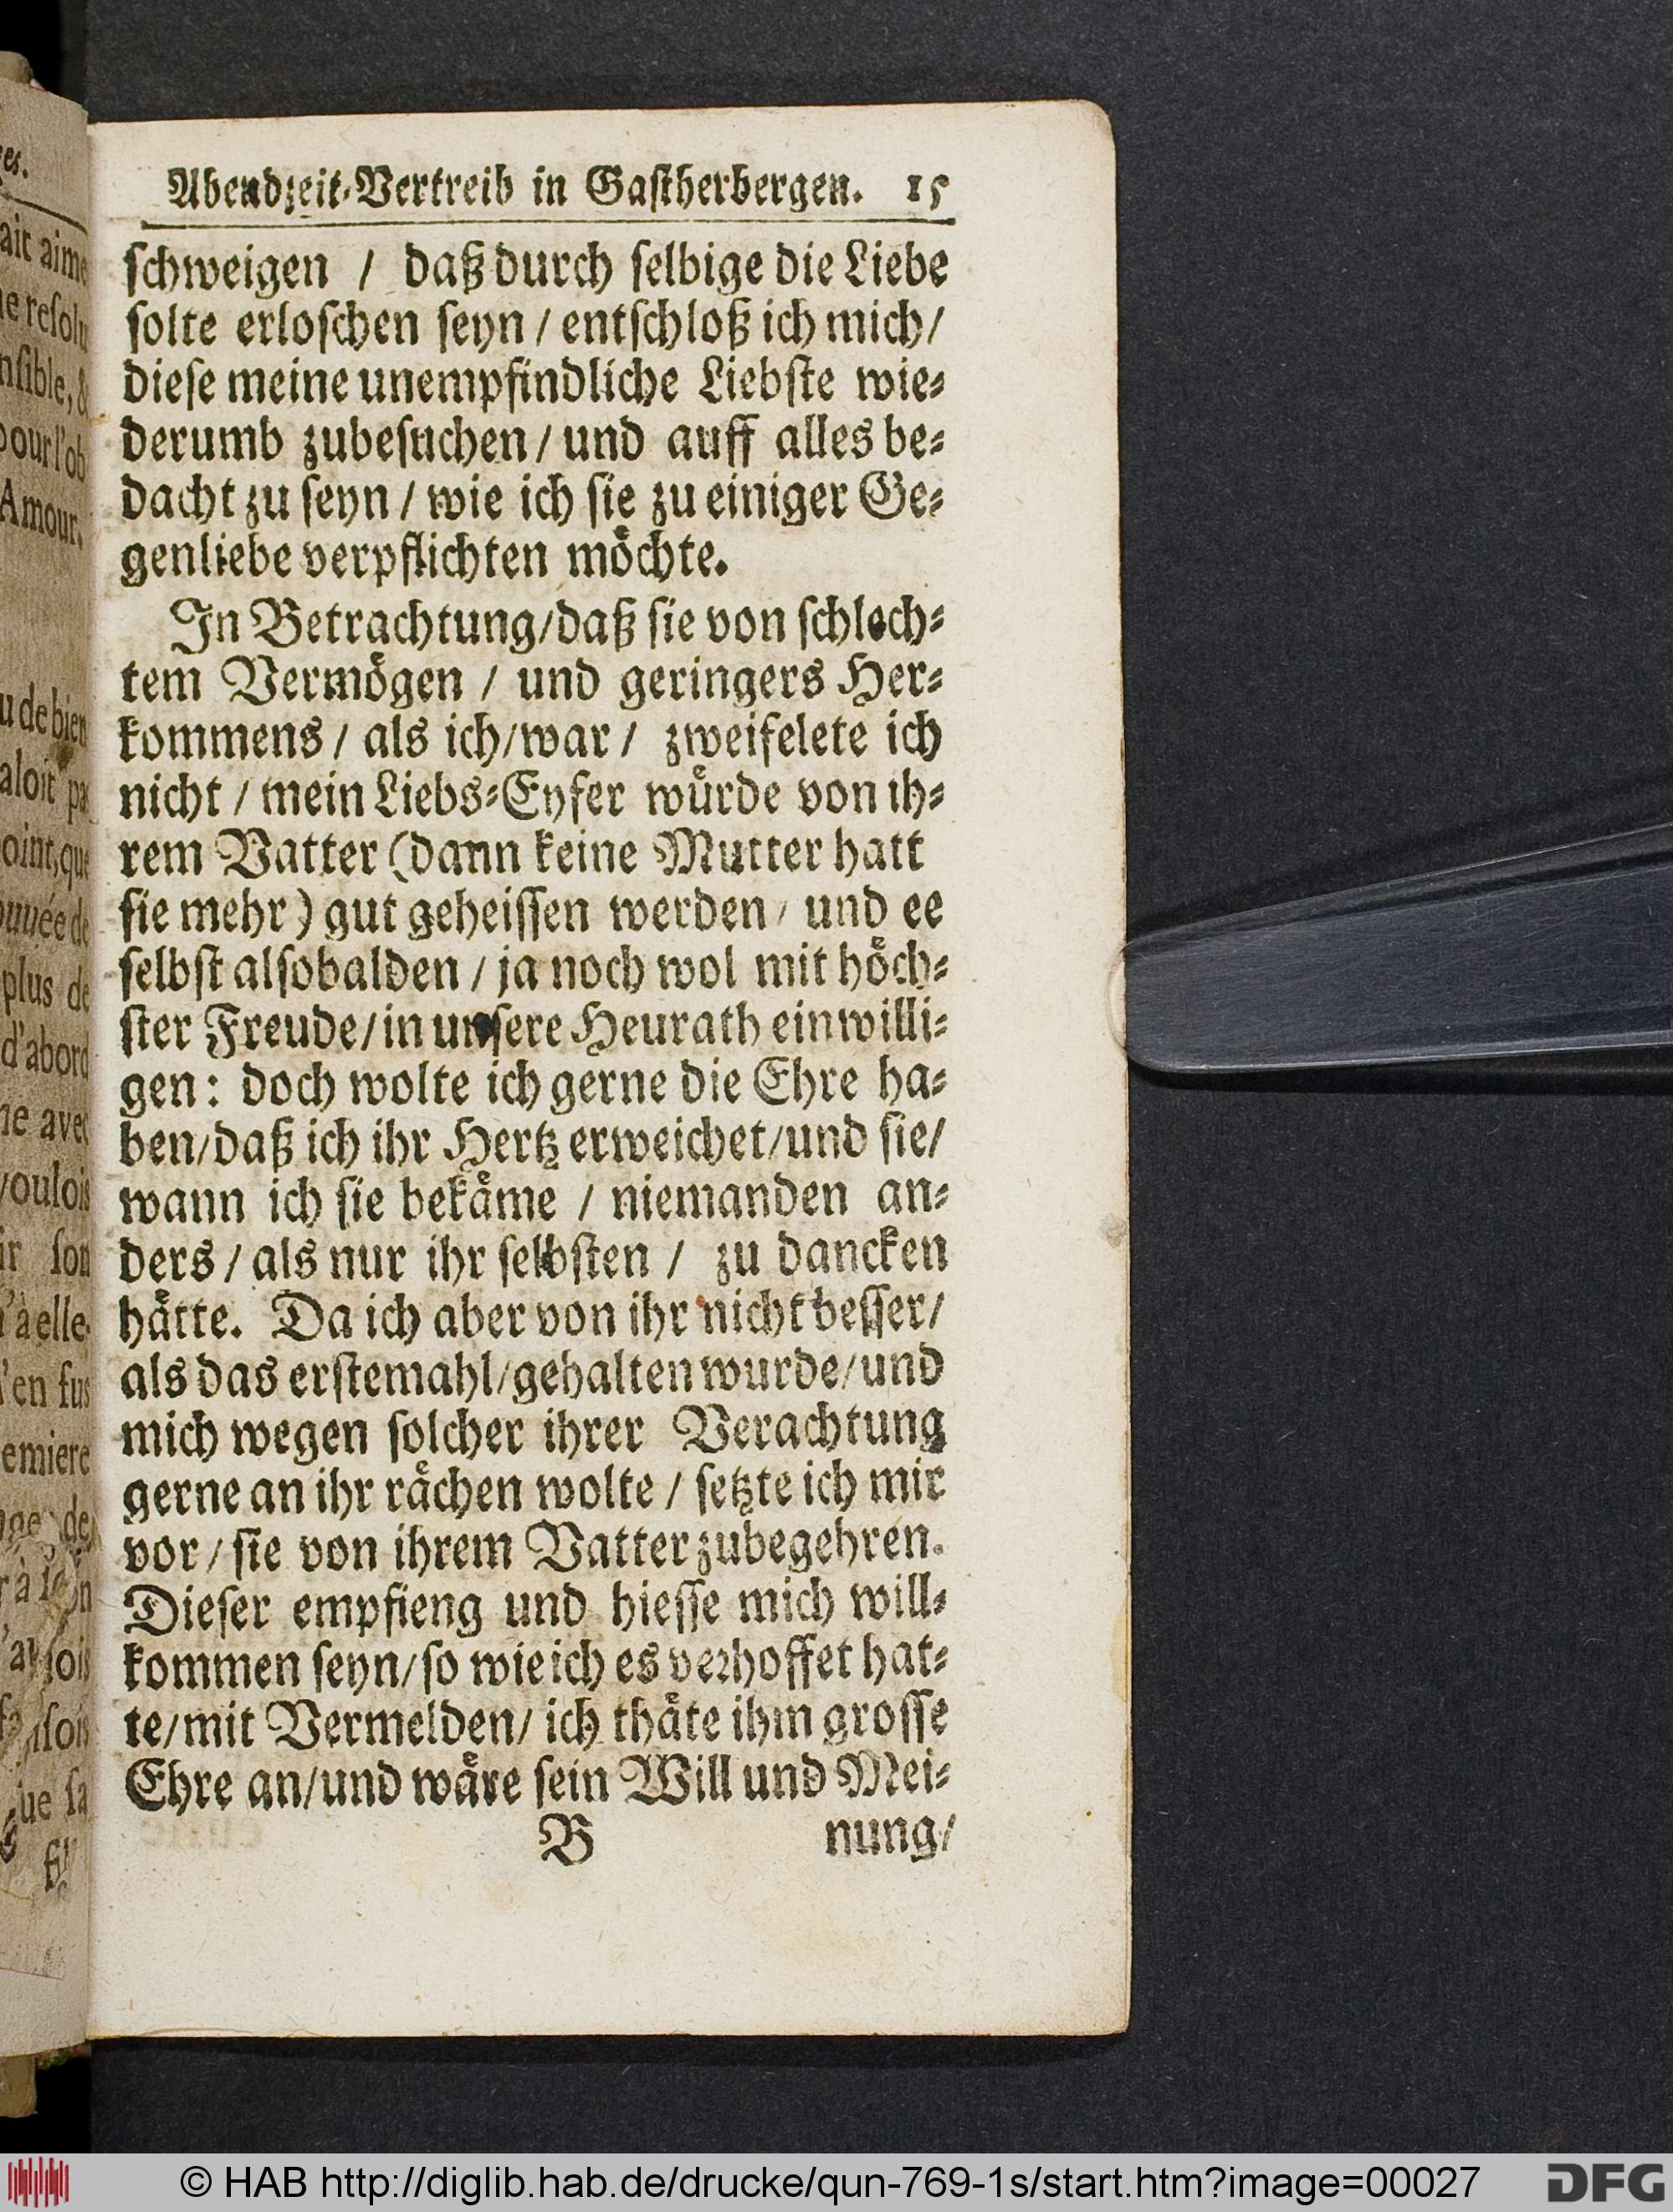 Abendzeit-Vertreib in Gastherbergen. 15
schweigen / daß durch selbige die Liebe
solte erloschen seyn / entschloß ich mich /
diese meine unempfindliche Liebste wie-
derumb zubesuchen / und auff alles be-
dacht zu seyn / wie ich sie zu einiger Ge-
genliebe verpflichten möchte.
In Betrachtung / daß sie von schlech-
tem Vermögen / und geringers Her-
kommens / als ich / war / zweifelete ich
nicht / mein Liebs-Eyfer würde von ih-
rem Vatter (dann keine Mutter hatt
sie mehr) gut geheissen werden / und ee
selbst alsobalden / ja noch wol mit höch-
ster Freude / in unsere Heurath einwilli-
gen: doch wolte ich gerne die Ehre ha-
ben / daß ich ihr Hertz erweichet / und sie /
wann ich sie bekäme / niemanden an-
ders / als nur ihr selbsten / zu dancken
hätte. Da ich aber von ihr nicht besser /
als das erstemahl / gehalten wurde / und
mich wegen solcher ihrer Verachtung
gerne an ihr rächen wolte / setzte ich mir
vor / sie von ihrem Vatter zubegehren.
Dieser empfieng und hiesse mich will-
kommen seyn / so wie ich es verhoffet hat-
te / mit Vermelden / ich thäte ihm grosse
Ehre an / und wäre sein Will und Mei-
B nung /
es.
ait aimé
resolu
nsible, &
pour l'ob
Amour.
u de bien
aloit pa
oint, que
ouuée de
plus de
d'abord
ne avec
voulois
ir son
à elle
'en fus
emiere
© HAB http://diglib.hab.de/drucke/qun-769-1s/start.htm?image=00027
DFG